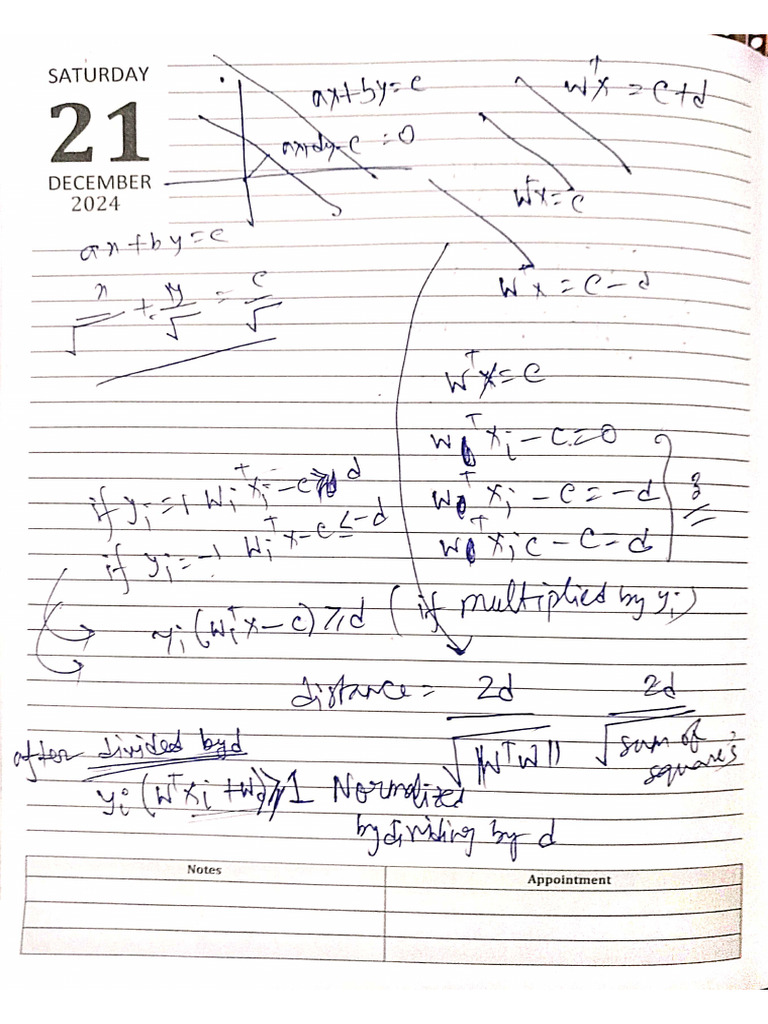 SATURDAY
21
DECEMBER
2024
ax+by=c
ax+by-c=0
WᵀX = C+d
WᵀX=C
WᵀX = C-d
ax+by=c
x/√ + y/√ = c/√
WᵀX=C
Wᵀxᵢ-C=0
Wᵀxᵢ - C = -d
Wᵀxᵢc - C = d
if yᵢ=1 Wᵢᵀxᵢ-C≥d
if yᵢ=-1 Wᵢᵀx-C≤-d
yᵢ(Wᵢᵀx-C)≥d (if multiplied by yᵢ)
distance = 2d/√||WᵀW|| 2d/√sum of squares
after divided by d
yᵢ(Wᵀxᵢ+W₀)≥1 Normalized
by dividing by d
Notes
Appointment